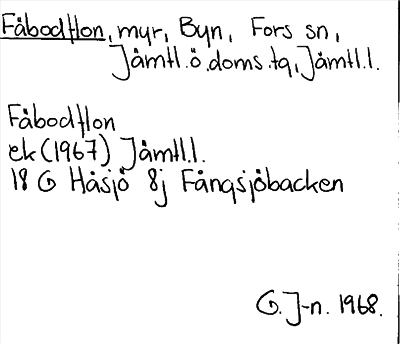 Fåbodflon, myr, Byn, Fors sn,
Jämtl.ö.doms.tg, Jämtl.l.
Fåbodflon
ek (1967) Jämtl.l.
18 G Håsjö 8j Fångsjöbacken
G. J-n. 1968.